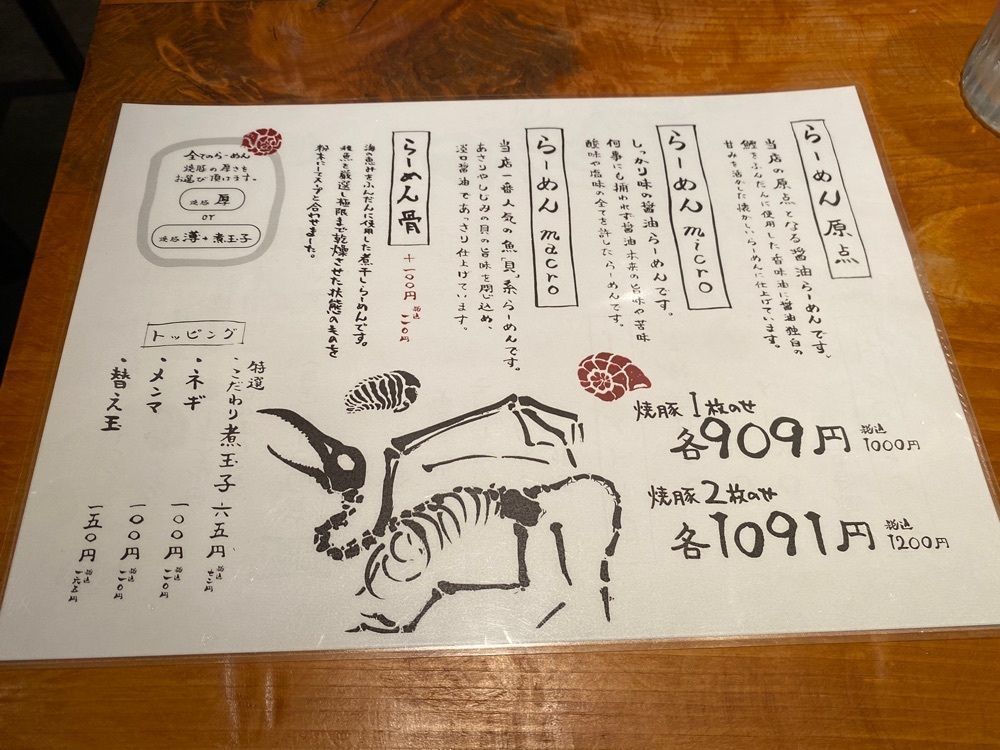 らーめん 原点
当店の原点となる醤油らーめんです。
鰹をふんだんに使用した香味油に醤油独自の
甘みを活かした懐かしいらーめんに仕上げています。
らーめん micro
しっかり味の醤油らーめんです。
何事にも捕われず醤油本来の旨味や苦味
酸味や塩味の全てを許したらーめんです。
らーめん macro
当店一番人気の魚「貝」系らーめんです。
あさりやしじみの貝の旨味を閉じ込め、
淡口醤油であっさり仕上げています。
らーめん 骨
+一〇〇円 税込一一〇円
海の恵みをふんだんに使用した煮干しらーめんです。
種魚を厳選し極限まで乾燥させた状態のものを
粉末にてスープと合わせました。
全てのらーめん
焼豚の厚さを
お選び頂けます。
焼豚 厚
or
焼豚 薄+煮玉子
焼豚1枚のせ
各909円 税込1000円
焼豚2枚のせ
各1091円 税込1200円
トッピング
特選
・こだわり煮玉子 六五円 税込七二円
・ネギ 一〇〇円 税込一一〇円
・メンマ 一〇〇円 税込一一〇円
・替え玉 一五〇円 税込一六五円